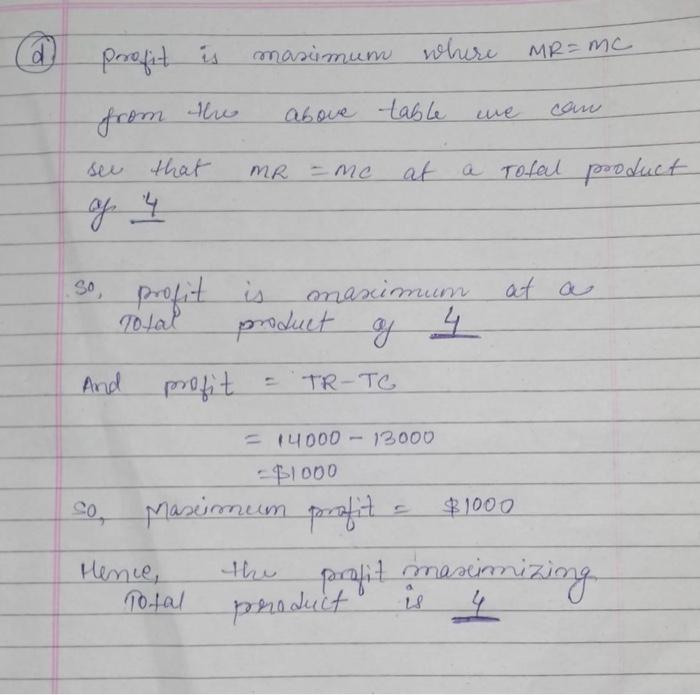 (d) Profit is maximum where MR = MC
from the above table we can
see that MR = MC at a Total product
of 4
So, profit is maximum at a
Total product of 4
And profit = TR - TC
= 14000 - 13000
= $1000
So, Maximum profit = $1000
Hence, the profit maximizing
Total product is 4